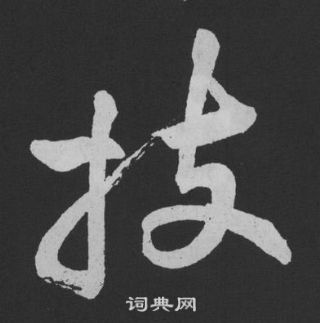 技
词典网